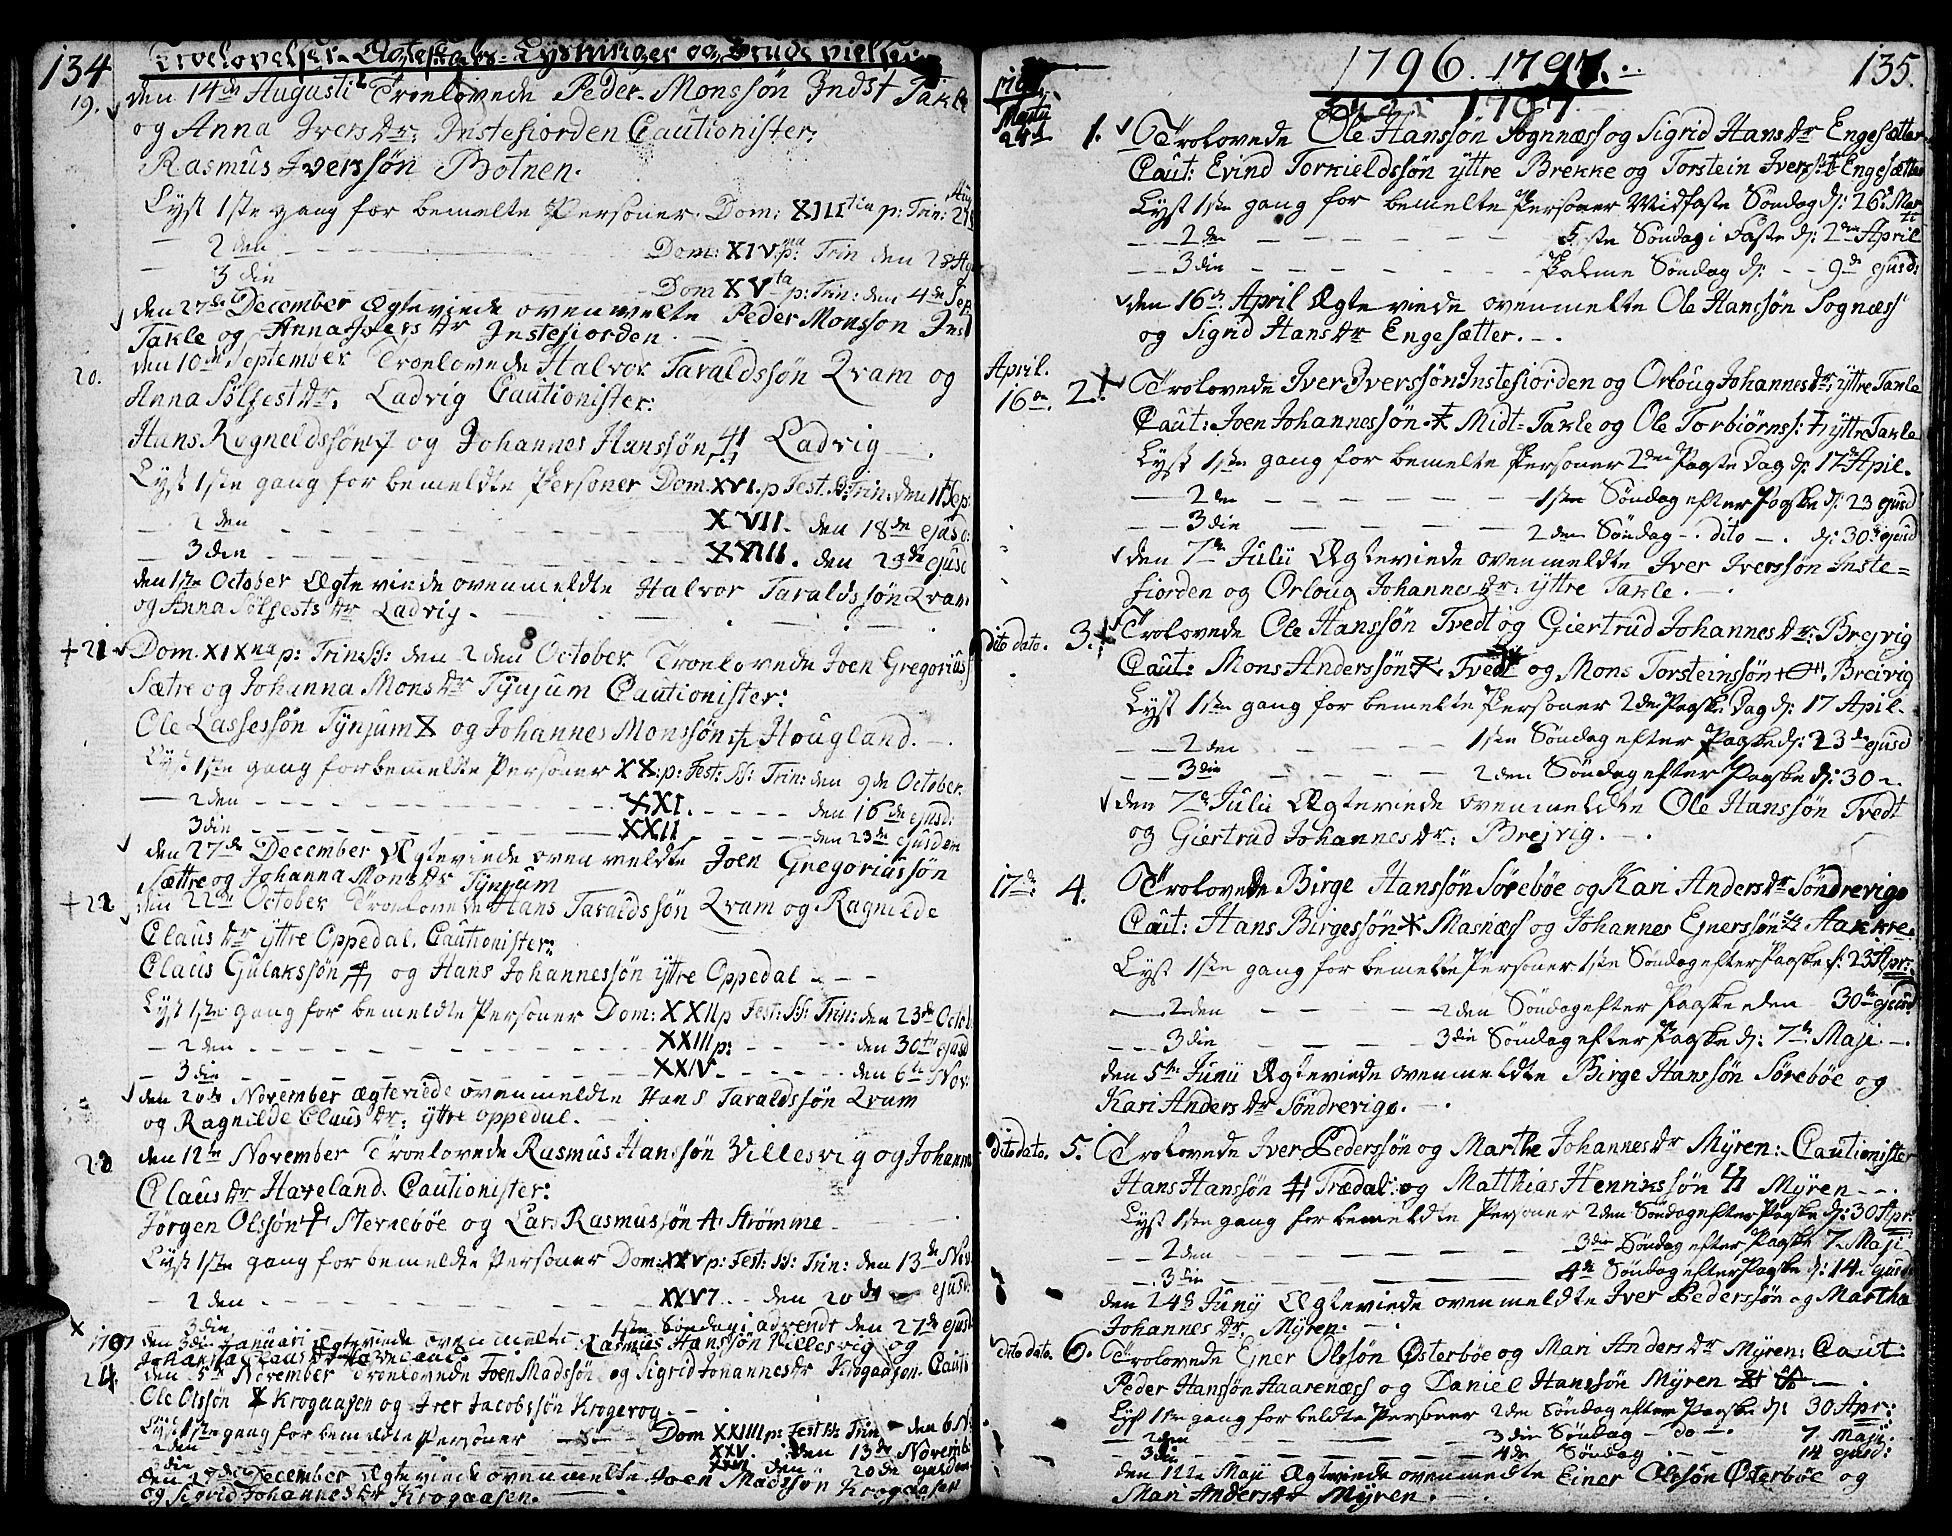 134 Troelovelser Ægteskabs-Lysninger og Brudevielser
19. den 14de Augusti Troelovede Peder Monssøn Indst Takle
og Anna Ivers dr: Instefiorden Cautionister
Rasmus Iverssøn Botnen.
Lyst 1ste gang for bemelte Personer Dom: XIII tia p: Trin: 21 Aug
— 2den — Dom: XIV p: Trin den 28 Aug
3die — Dom XV ta p: Trin: den 4de Sep
den 27de December Ægteviede ovenmelte Peder Monsson Inst
Takle og Anna Ivers dr Instefiorden.
20. den 10de September Troelovede Halvor Taraldssøn Qvam og
Anna Sölfest dr: Ladvig Cautionister:
Hans Rogneldssøn og Johannes Hanssøn Ladvig
Lyst 1ste gang for bemeldte Personer Dom. XVI. p Fest. SS: Trin: den 11te Sep:
— 2den — XVII. den 18de ejusd:
— 3den — XVIII. den 25de ejusd
den 1ste October Ægteviede ovenmeldte Halvor Taraldssøn Qvam
og Anna Sølfests dr Ladvig.
+21 Dom. XIXna p: Trin SS: den 2den October Troelovede Joen Gregoriuss
Sætre og Johanna Mons dr Tynjum Cautionister:
Ole Lassessøn Tynjum og Johannes Monssøn Hougland.
Lyst 1ste gang for bemeldte Personer XX: p: Fest: SS: Trin: den 9de October.
— 2den — XXI. — den 16de ejusd:
3die — XXII — den 23de ejusdem
den 27de December Ægteviede ovenmeldte Joen Gregoriussøn
Sættre og Johanna Mons dr Tynjum
+22 den 22de October Troelovede Hans Taraldssøn Qvam og Ragnilde
Claus dr yttre Oppedal. Cautionister:
Claus Gulakssøn og Hans Johannessøn yttre Oppedal
Lyst 1ste gang for bemeldte Personer Dom: XXII p Fest: SS: Trin: den 23de Octob
— 2den — XXIII p: — den 30te ejusd
— 3die — XXIV — den 6te Nov:
den 20de November Ægteviede ovenmeldte Hans Taraldssøn Qvam
og Ragnilde Claus dr: yttre oppedal.
23 den 12te November Troelovede Rasmus Hanssøn Villesvig og Johanna
Claus dr Haveland. Cautionister:
Jörgen Olssøn Sternebøe og Lars Rasmussøn Strömme
Lyst 1ste gang for bemeldte Personer Dom: XXV p: Fest: SS: Trin: den 13de Nov
— 2den — XXVI — den 20de ejusd:
3die — 1ste Søndag i advendt den 27de ejusd
1797 den 3die Januari Ægteviede ovenmelte Rasmus Hanssøn Villesvig og
Johanna Claus dr Haveland.
24 den 5te November Troelovede Joen Madssøn og Sigrid Johannes dr Krogaasen. Cauti
Ole Olssøn Krogaasen og Iver Jacobssøn Krogevog
Lyst 1ste gang for bemeldte Personer — Dom XXIIII p: Fest SS: Trin — den 6 N:
2den — XXV. — den 13de Novemb:
3die — XXVI den 20de ejusdem
den 27de December Ægteviede ovenmelte Joen Madssøn Krogaasen
og Sigrid Johannes dr Krogaasen.
1796. 1797. 135.
1797
1797 Martii 24d 1. Trolovede Ole Hanssøn Sognnæss og Sigrid Hans dr Engesætter
Caut: Evind Torkieldssøn yttre Brekke og Torstein Iverss: Engesætter
Lyst 1ste gang for bemelte Personer Midfaste Søndag d: 26de Mar
— 2den — 5te Søndag i Faste d: 2den April
— 3die — Palme Søndag d: — 9de ejusd:
den 16de April Ægteviede ovenmelte Ole Hanssøn Sognæss
og Sigrid Hans dr Engesætter.
April. 16de. 2. Trolovede Iver Iverssøn Instefiorden og Orloug Johannes dr: yttre Takle
Caut: Joen Johannessøn Midt-Takle og Ole Torbiørnss: yttre Takle
Lyst 1ste gang for bemelte Personer 2den Paaske Dag d: 17de Apil.
— 2den — 1ste Søndag efter Paaske d: 23 ejusd
— 3die — 2den Søndag — dito — d: 30te ejusd
den 7de Julii Ægteviede ovenmeldte Iver Iverssøn Inste-
fiorden og Orloug Johannes dr: yttre Takle.
Dito dato. 3. Trolovede Ole Hanssøn Tvedt og Giertrud Johannes dr: Brejvig
Caut: Mons Anderssøn Tvedt og Mons Torsteinssøn Breivig
Lyst 1ste gang for bemelte Personer 2den Paaske Dag d: 17 April.
— 2den — 1ste Søndag efter Paaske d: 23de ejusd
— 3die — 2den Søndag efter Paaske d: 30
den 7de Julii Ægteviede ovenmeldte Ole Hanssøn Tvedt
og Giertrud Johannes dr: Brejvig.
17de: 4. Trolovede Birge Hanssøn Sørebøe og Kari Anders dr Söndrevigo
Caut: Hans Birgessøn Masnæs og Johannes Ejnerssøn Aakkre.
Lyst 1ste gang for bemelte Personer 1ste Søndag efter Paaske d: 23 Apr:
— 2den — 2den Søndag efter Paaske den 30te ejusd
— 3die — 3die Søndag efter Paaske d: 7de Maji
den 5te Junii Ægteviede ovenmeldte Birge Hanssøn Sörebøe og
Kari Anders dr Söndrevigo.
Dito dato. 5. Trolovede Iver Pederssøn og Marthe Johannes dr Mÿren: Cautionister
Hans Hanssøn Trædal: og Matthias Henrikssøn Mÿren
Lyst 1ste gang for bemeldte Personer 2den Søndag efter Paaske d: 30 Apr:
— 2den — 3die Søndag efter Paaske 7 Maji
— 3die — 4de Søndag efter Paaske d: 14 Ejusd
den 24de Junij Ægteviede ovenmeldte Iver Pederssøn og Martha
Johannes dr. Mÿren.
Dito dato. 6. Trolovede Ejner Olssøn Østerbøe og Mari Anders dr Mÿren: Caut:
Peder Hanssøn Aarenæss og Daniel Hanssøn Mÿren
Lyst 1ste gang for beldte Personer 2den Søndag efter Paaske d: 30 Apr:
— 2den — 3die Søndag — do — 7. Maji.
— 3die — 4de Søndag — 14 ejusd:
den 11te Maji Ægteviede ovenmeldte Einer Olssøn Østerbøe og
Mari Anders dr Mÿren.